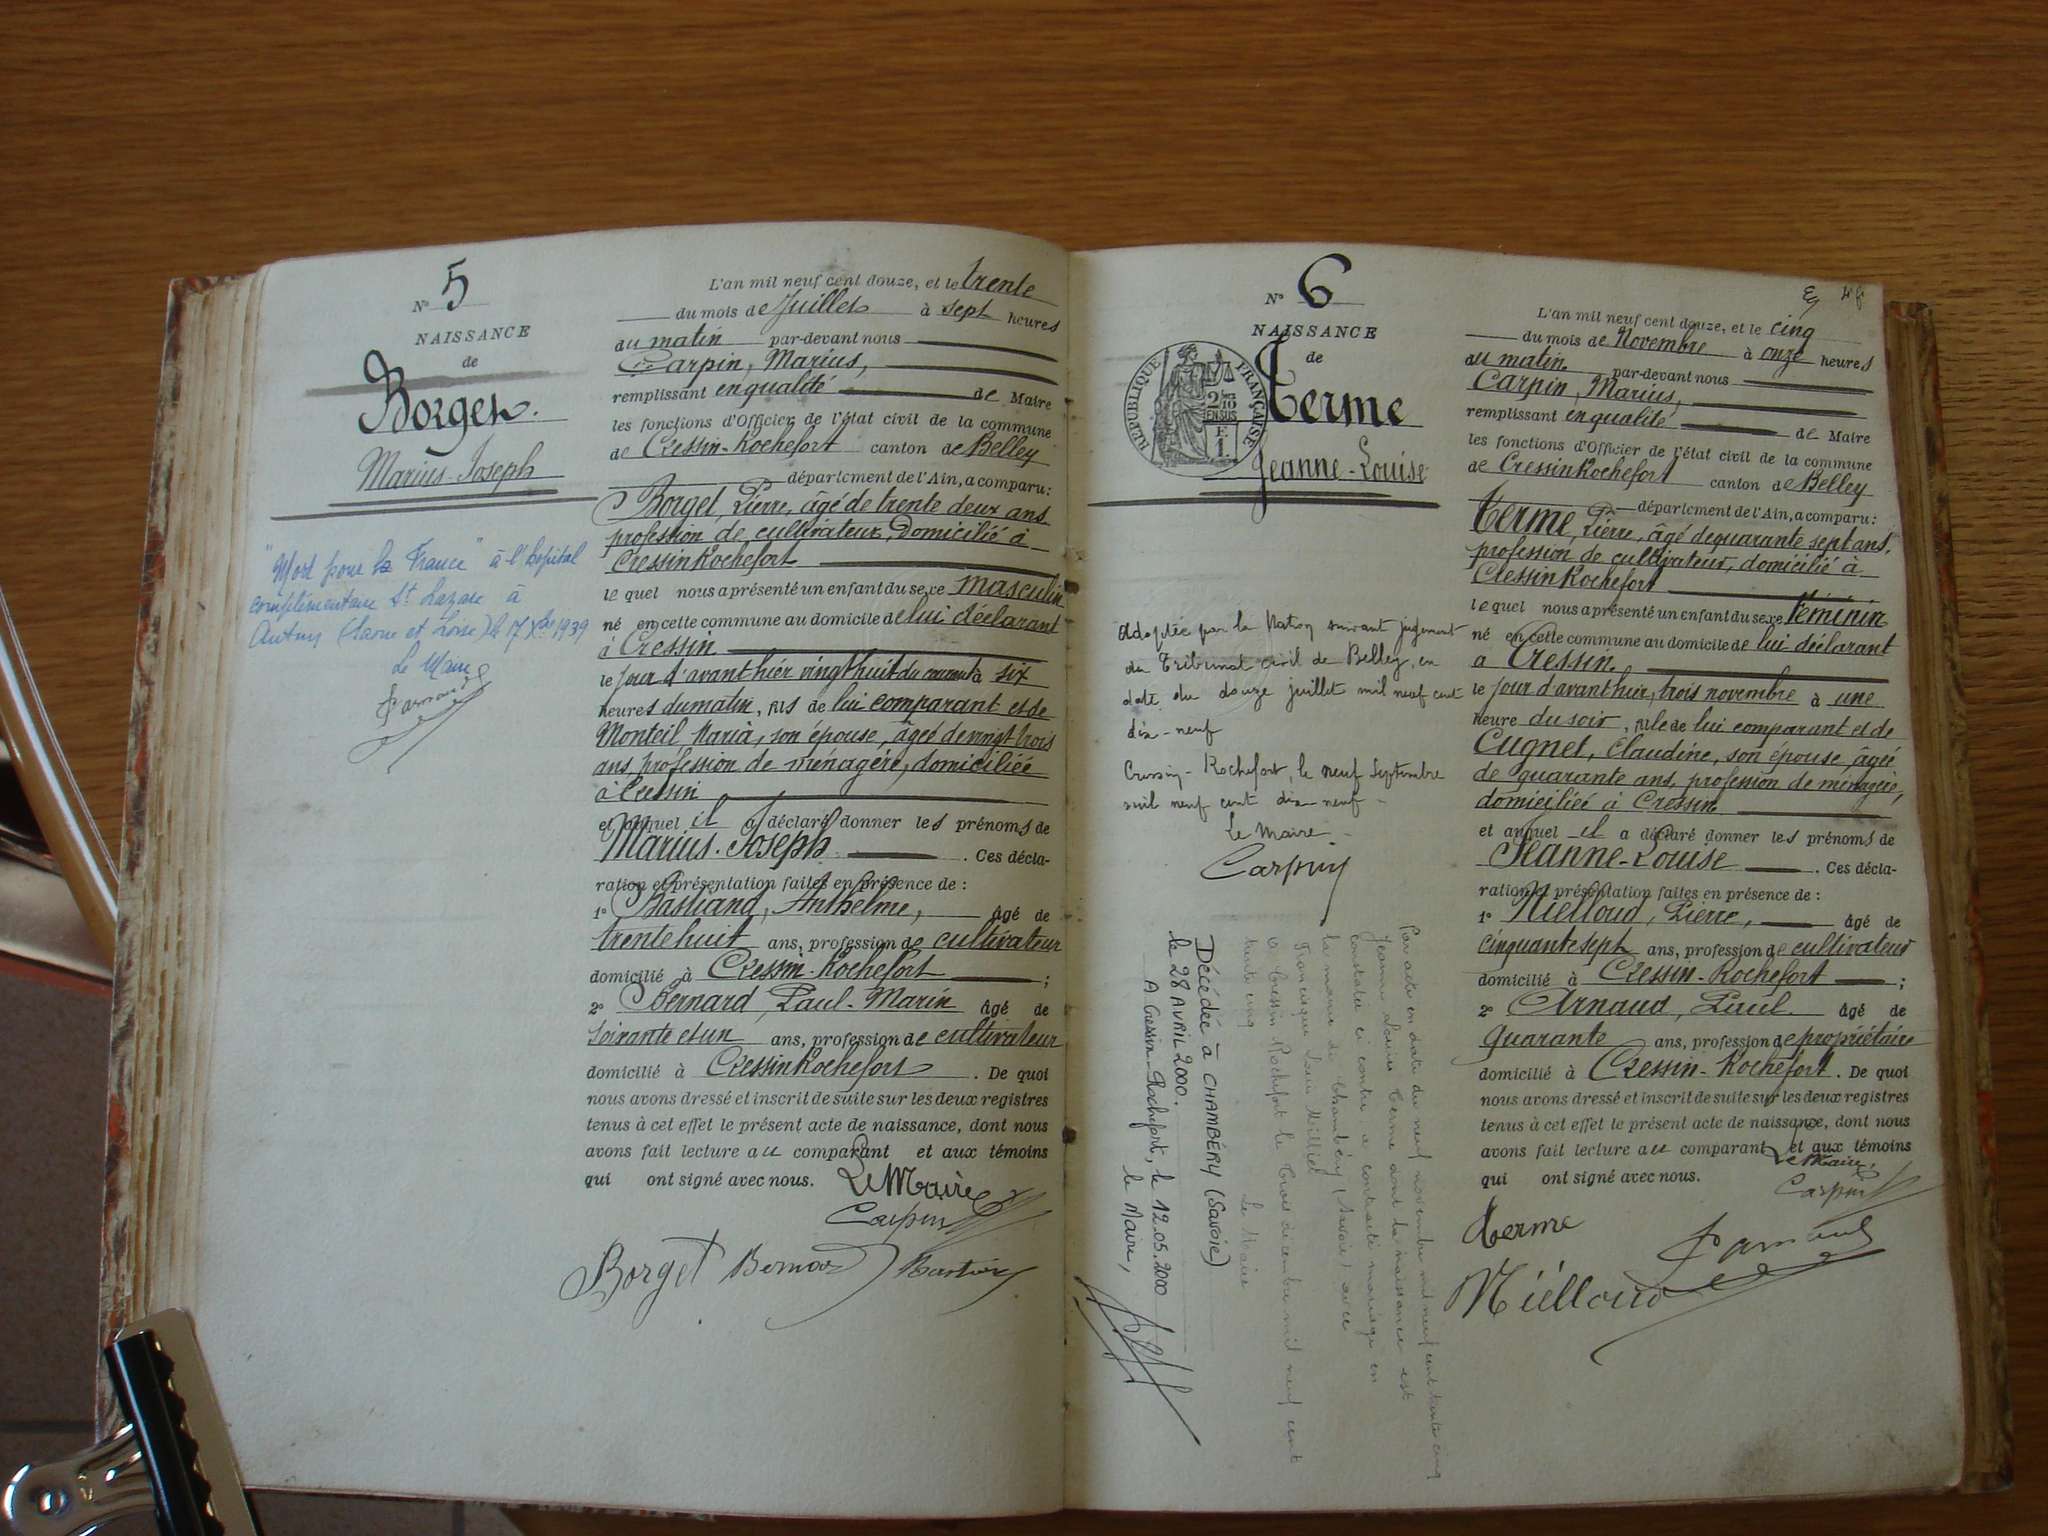 N° 5
NAISSANCE
de
Borget.
Marius-Joseph
"Mort pour la France" à l'hôpital
complémentaire St Lazare à
Autun (Saone et Loire) le 17 Xbre 1939
Le Maire
L'an mil neuf cent douze, et le trente
du mois de Juillet à sept heures
du matin par-devant nous
Carpin, Marius,
remplissant en qualité de Maire
les fonctions d'Officier de l'état civil de la commune
de Cressin-Rochefort canton de Belley
département de l'Ain, a comparu:
Borget, Pierre, âgé de trente deux ans
profession de cultivateur, Domicilié à
Cressin Rochefort
le quel nous a présenté un enfant du sexe masculin
né en cette commune au domicile de lui déclarant
à Cressin
le jour d'avant hier vingt huit du courant à six
heures du matin, fils de lui comparant et de
Monteil Maria, son épouse, âgée de vingt trois
ans, profession de ménagère, domiciliée
à Cressin
et auquel il a déclaré donner les prénoms de
Marius-Joseph. Ces décla-
ration et présentation faites en présence de :
1° Bastiand, Anthelme, âgé de
trente huit ans, profession de cultivateur
domicilié à Cressin-Rochefort ;
2° Bernard, Paul-Marin âgé de
soixante et un ans, profession de cultivateur
domicilié à Cressin Rochefort. De quoi
nous avons dressé et inscrit de suite sur les deux registres
tenus à cet effet le présent acte de naissance, dont nous
avons fait lecture au comparant et aux témoins
qui ont signé avec nous. Le Maire
Carpin
Borget Bernard Bastian
N° 6
NAISSANCE
de
RÉPUBLIQUE FRANÇAISE
2/10 EN SUS
Terme
Jeanne-Louise
Adoptée par la Nation suivant jugement
du Tribunal civil de Belley, en
date du douze juillet mil neuf cent
dix-neuf
Cressin-Rochefort, le neuf Septembre
mil neuf cent dix-neuf-
Le Maire-
Carpin
Par acte en date du neuf novembre mil neuf cent trente cinq
Jeanne Louise Terme dont la naissance est
constatée ci contre, a contracté mariage en
la mairie de Chambéry (Savoie) avec
Francisque Louis
à Cressin Rochefort le trois décembre mil neuf cent
trente cinq
Le Maire
Décédée à CHAMBÉRY (Savoie)
le 28 AVRIL 2000.
A Cressin-Rochefort, le 12.05.2000
le Maire,
L'an mil neuf cent douze, et le cinq
du mois de Novembre à onze heures
du matin par-devant nous
Carpin, Marius,
remplissant en qualité de Maire
les fonctions d'Officier de l'état civil de la commune
de Cressin Rochefort canton de Belley
département de l'Ain, a comparu:
Terme, Pierre, âgé de quarante sept ans,
profession de cultivateur, domicilié à
Cressin Rochefort
le quel nous a présenté un enfant du sexe féminin
né en cette commune au domicile de lui déclarant
à Cressin.
le jour d'avant hier, trois novembre à une
heure du soir, fille de lui comparant et de
Cugnet, Claudine, son épouse, âgée
de quarante ans, profession de ménagère,
domiciliée à Cressin
et auquel il a déclaré donner les prénoms de
Jeanne-Louise. Ces décla-
ration et présentation faites en présence de :
1° Nielloud, Pierre, âgé de
cinquante sept ans, profession de cultivateur
domicilié à Cressin-Rochefort ;
2° Arnaud, Paul. âgé de
quarante ans, profession de propriétaire
domicilié à Cressin-Rochefort. De quoi
nous avons dressé et inscrit de suite sur les deux registres
tenus à cet effet le présent acte de naissance, dont nous
avons fait lecture au comparant et aux témoins
qui ont signé avec nous. Le Maire,
Carpin
Terme
P Arnaud
Niélloud